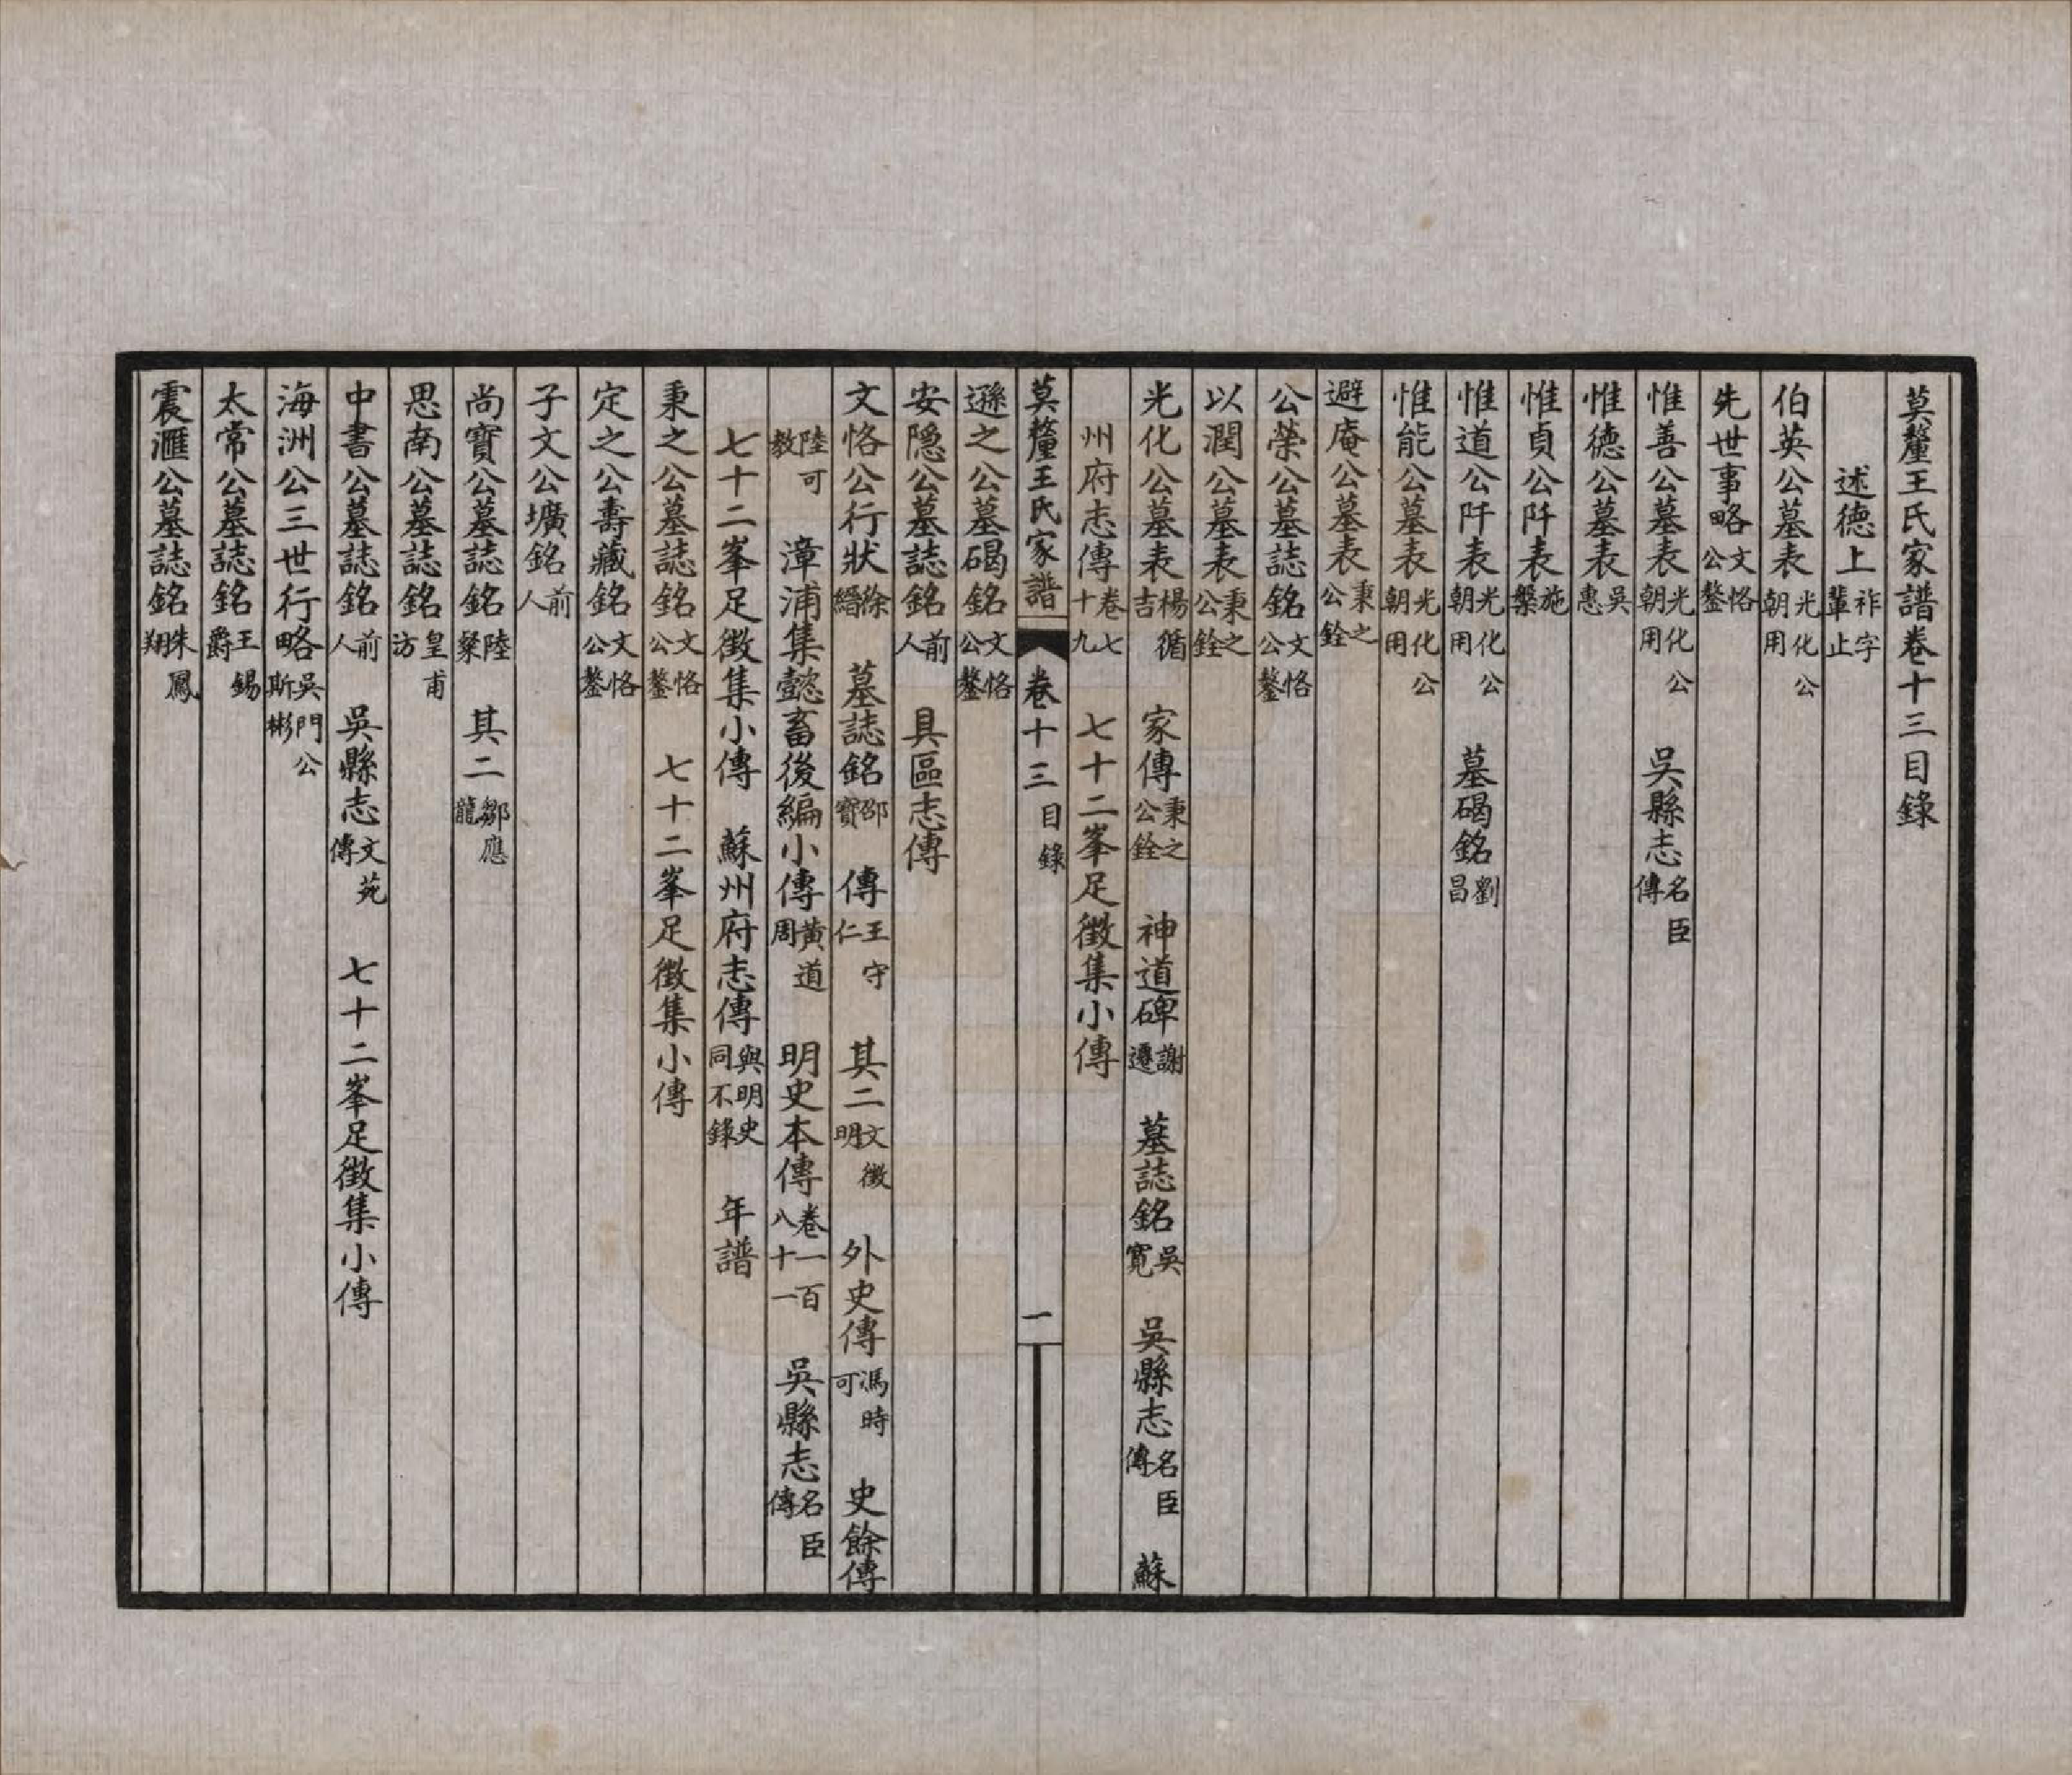 莫釐王氏家譜卷十三目錄
述德上祚字輩止
伯英公墓表光化公朝用
先世事略文恪公鏊
惟善公墓表光化公朝用 吳縣志名臣傳
惟德公墓表吳惠
惟貞公阡表施槃
惟道公阡表光化公朝用 墓碣銘劉昌
惟能公墓表光化公朝用
避庵公墓表秉之公銓
公榮公墓誌銘文恪公鏊
以潤公墓表秉之公銓
光化公墓表楊循吉 家傳秉之公銓 神道碑謝遷 墓誌銘吳寬 吳縣志名臣傳 蘇
州府志傳卷七十九 七十二峯足徵集小傳
莫釐王氏家譜 卷十三 目錄 一
遜之公墓碣銘文恪公鏊
安隱公墓誌銘前人 具區志傳
文恪公行狀徐縉 墓誌銘邵寶 傳王守仁 其二文徵明 外史傳馮時可 史餘傳
陸可教 漳浦集懿畜後編小傳黃道周 明史本傳卷一百八十一 吳縣志名臣傳
七十二峯足徵集小傳 蘇州府志傳與明史同不錄 年譜
秉之公墓誌銘文恪公鏊 七十二峯足徵集小傳
定之公壽藏銘文恪公鏊
子文公壙銘前人
尚寶公墓誌銘陸粲 其二鄒應龍
思南公墓誌銘皇甫汸
中書公墓誌銘前人 吳縣志文苑傳 七十二峯足徵集小傳
海洲公三世行略吳門公斯彬
太常公墓誌銘王錫爵
震滙公墓誌銘朱鳳翔